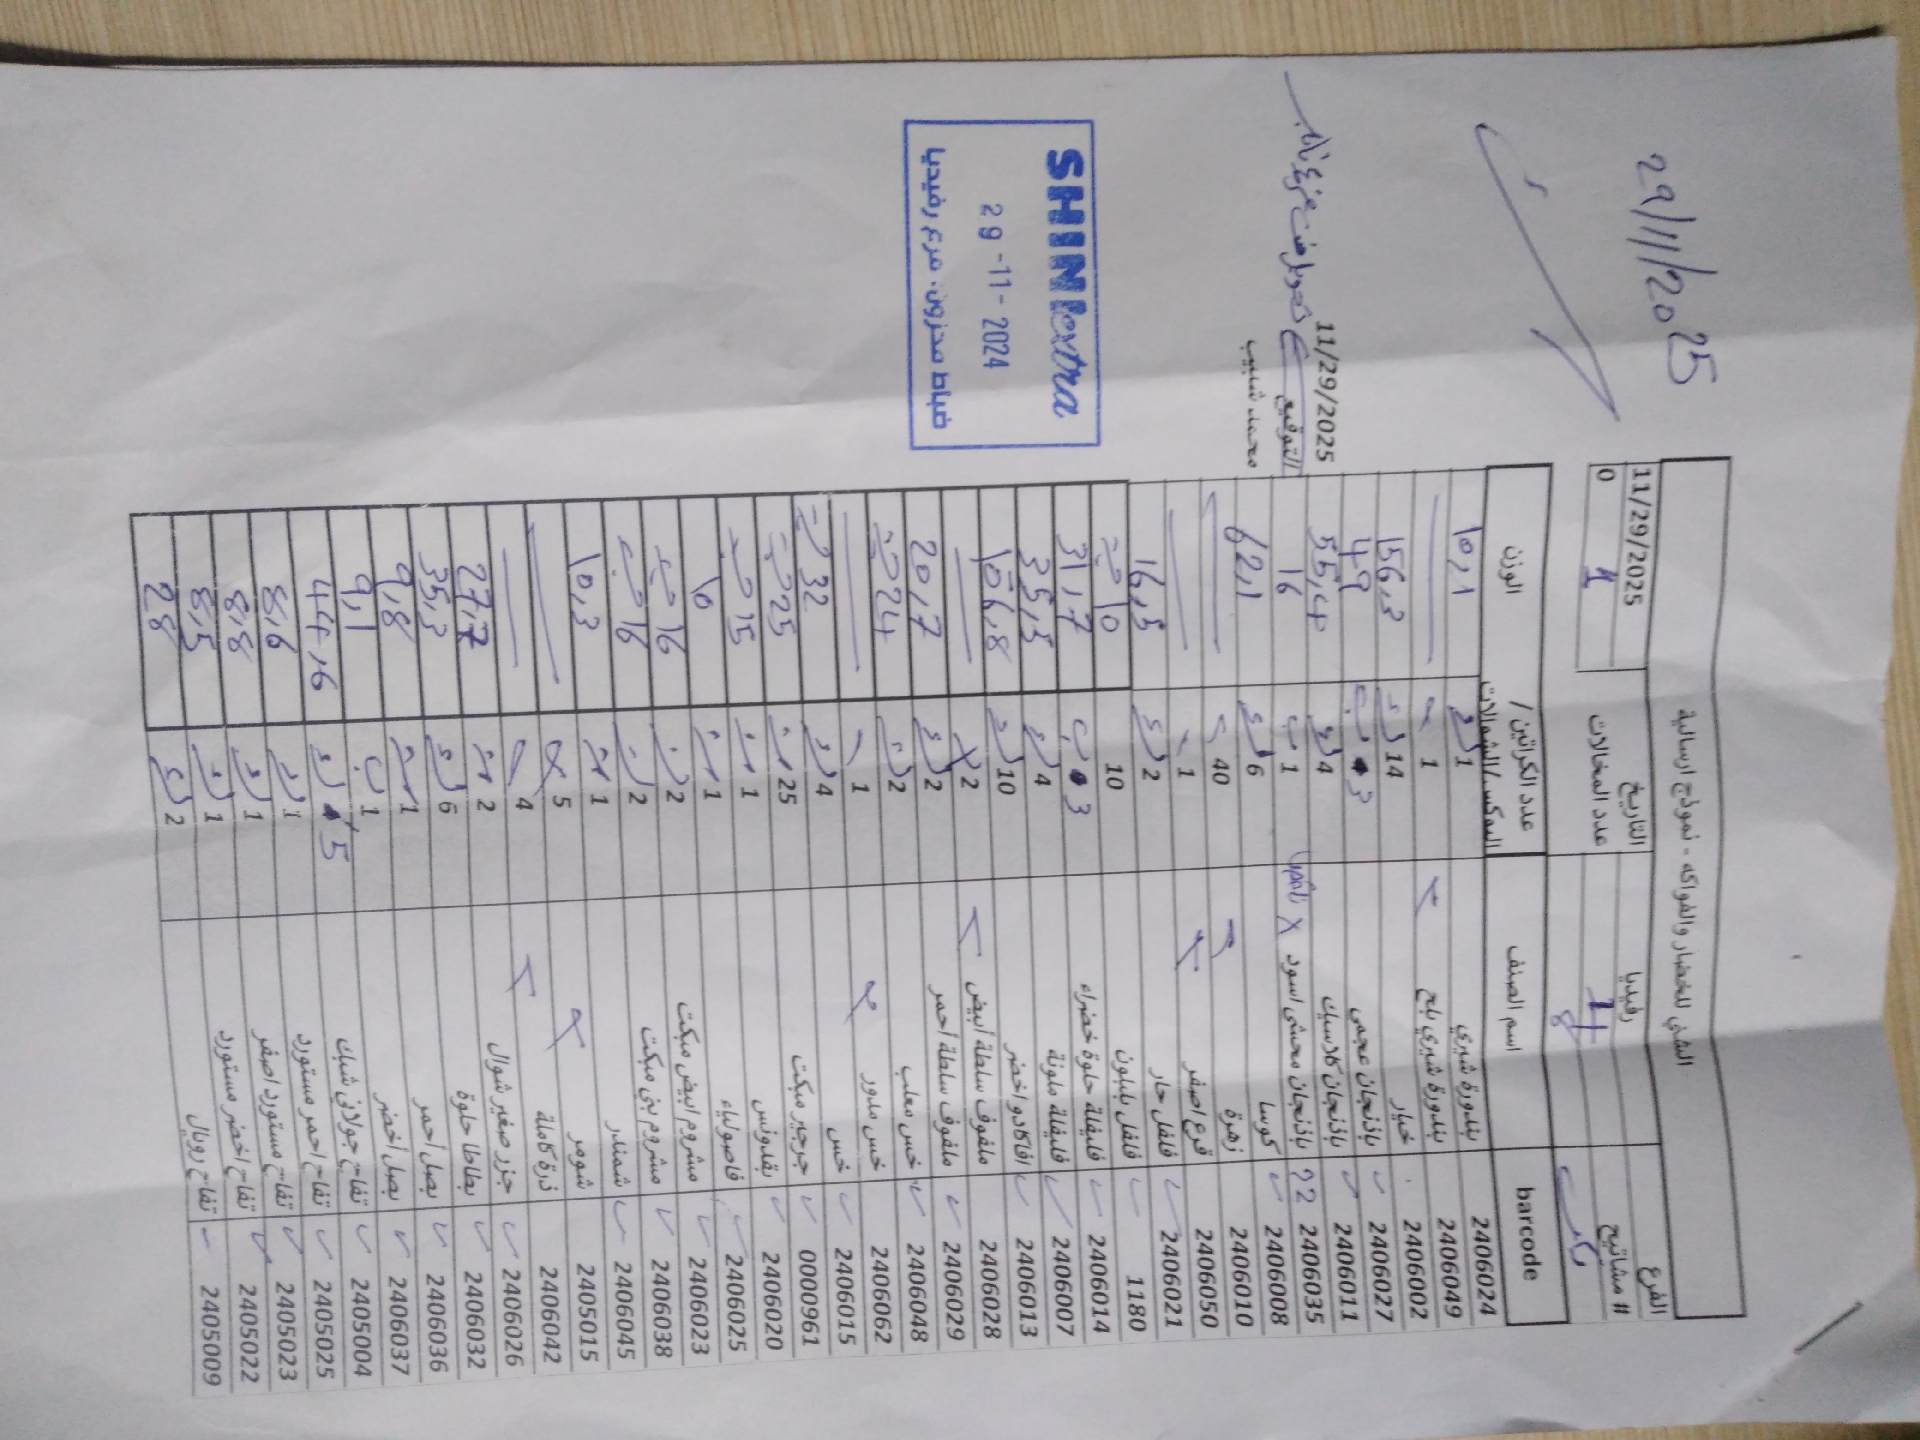 29/11/2025
الشني للخضار والفواكه - نموذج ارسالية
الفرع رفيديا التاريخ 11/29/2025
# مشاتيح عدد المخالات 0 1
barcode اسم الصنف عدد الكراتين / البوكس/الشوالات الوزن
2406024 بندورة شيري 1 10,1
2406049 بندورة شيري بلح 1
2406002 خيار 14 156,3
2406027 باذنجان عجمي 3 49
2406011 باذنجان كلاسيك 4 55,4
2406035 ?? باذنجان محشي اسود X 1 16
2406008 كوسا 6 62,1
2406010 زهرة 40
2406050 قرع اصفر 1
2406021 فلفل حار 2 16,5
1180 فلفل بلبلون 10 10 حبة
2406014 فليفلة حلوة خضراء 3 31,7
2406007 فليفلة ملونة 4 35,5
2406013 افاكادو اخضر 10 106,8
2406028 ملفوف سلطة أبيض 2
2406029 ملفوف سلطة أحمر 2 20,7
2406048 خس معلب 2 24 حبة
2406062 خس مدور 1
2406015 خس 4 32
0000961 جرجير مبكت 25 25 حبة
2406020 بقدونس 1 15 حبة
2406025 فاصولياء 1 10
2406023 مشروم ابيض مبكت 2 16 حبة
2406038 مشروم بني مبكت 2 16 حبة
2406045 شمندر 1 10,3
2405015 شومر 5
2406042 ذرة كاملة 4
2406026 جزر صغير شوال 2 27,7
2406032 بطاطا حلوة 6 35,3
2406036 بصل أحمر 1 9,8
2406037 بصل أخضر 1 9,1
2405004 تفاح جولاني شبك 5 44,16
2405025 تفاح احمر مستورد 1 8,6
2405023 تفاح مستورد اصفر 1 8,8
2405022 تفاح اخضر مستورد 1 8,5
2405009 تفاح رويال 2 28
11/29/2025
التوقيع
محمد شبيب
SHINI extra
29-11-2024
ضباط مخزون، فرع رفيديا